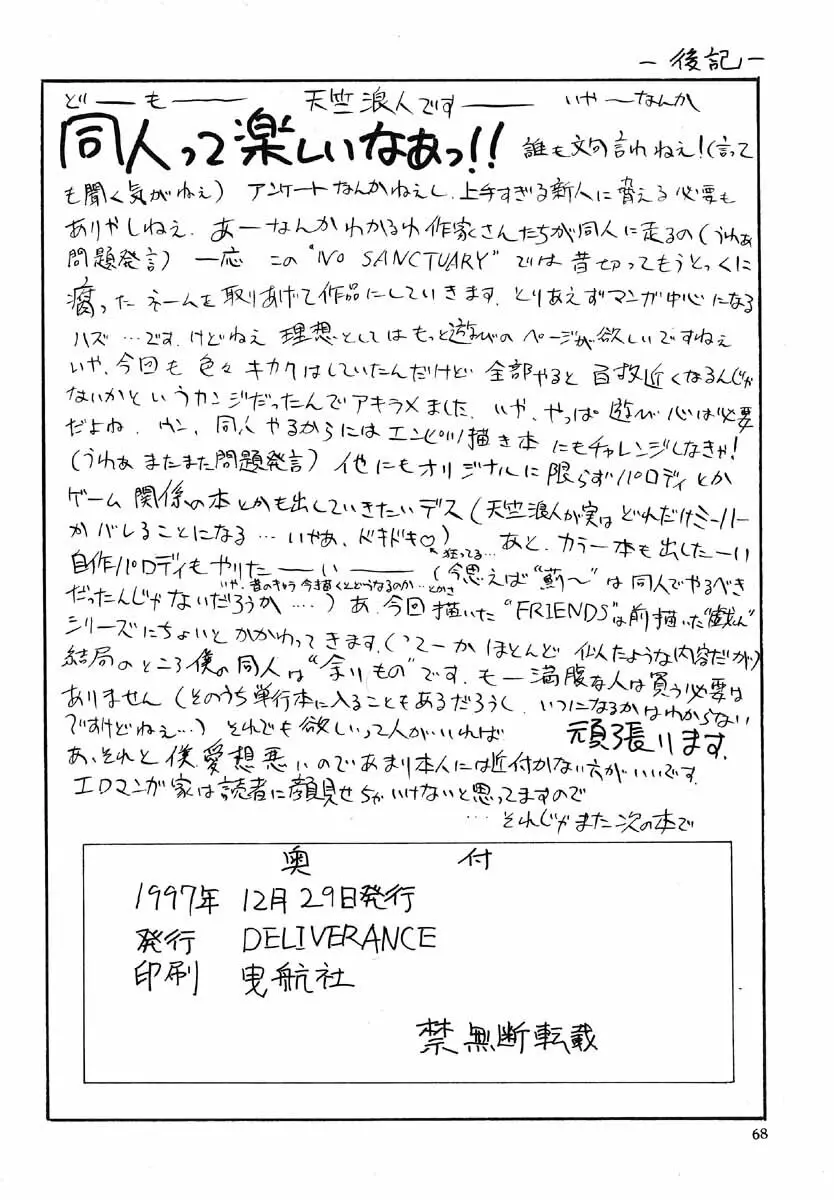 －後記－
ど――も―― 天竺浪人です―― いや～なんか
同人って楽しいなあっ!! 誰も文句言われねえ!(言って
も聞く気がねえ) アンケートなんかねえし、上手すぎる新人に脅える必要も
ありゃしねえ. あーなんかわかるわ作家さんたちが同人に走るの(うわぁ
問題発言) 一応 この"NO SANCTUARY"では昔切ってもうとっくに
腐ったネームを取りあげて作品にしていきます. とりあえずマンガ中心になる
ハズ…です. けどねえ 理想としてはもっと遊びのページが欲しいですねえ
いや、今回も色々キカクはしていたんだけど全部やると百枚近くなるんじゃ
ないかというカンジだったんでアキラメました. いや、やっぱ遊び心は必要
だよね. ウン、同人やるからにはエンピツ描き本にもチャレンジしなきゃ!
(うわぁまたまた問題発言) 他にもオリジナルに限らずパロディとか
ゲーム関係の本とかも出していきたいデス(天竺浪人が実はどれだけミーハー
かバレることになる…いやあ、ドキドキ♡) あと、カラー本も出したーい
狂ってる…
自作パロディもやりたーーいー (今思えば"薊～"は同人でやるべき
いや、昔のキャラ今描くとどうなるのか…とかさ
だったんじゃないだろうか…) あ、今回描いた"FRIENDS"は前描いた"戯れ"
シリーズにちょいとかかわってきます.(つーかほとんど似たような内容だが)
結局のところ僕の同人は"余りもの"です. もー満腹な人は買う必要は
ありません(そのうち単行本に入ることもあるだろうし、いつになるかはわからない
ですけどねぇ…) それでも欲しいって人がいれば 頑張ります.
あ、それと僕、愛想悪いのであまり本人には近付かない方がいいです.
エロマンガ家は読者に顔見せちゃいけないと思ってますので
…それじゃまた次の本で
奥付
1997年 12月29日発行
発行 DELIVERANCE
印刷 曳航社
禁無断転載
68